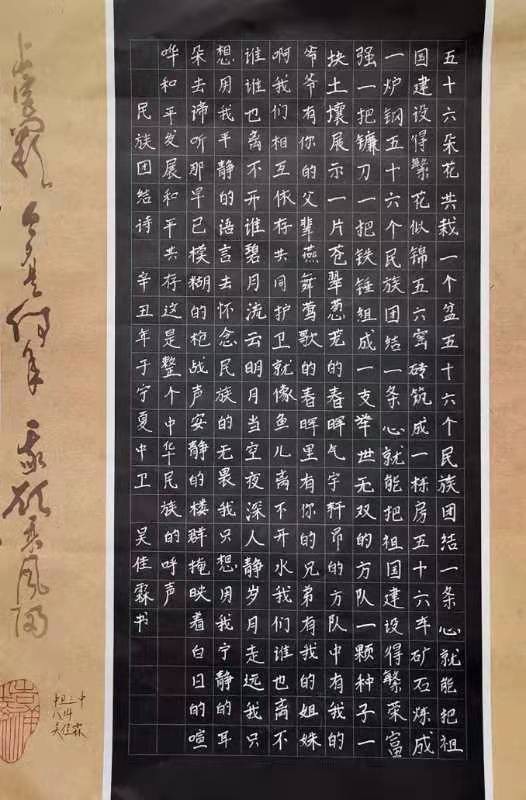 五十六朵花共栽一个盆五十六个民族团结一条心就能把祖
国建设得繁花似锦五六窑砖筑成一栋房五十六车矿石炼成
一炉钢五十六个民族团结一条心就能把祖国建设得繁荣富
强一把镰刀一把铁锤组成一支举世无双的方队一颗种子一
块土壤展示一片苍翠葱茏的春晖气宇轩昂的方队中有我的
爷爷有你的父辈燕舞莺歌的春晖里有你的兄弟有我的姐妹
啊我们相互依存共同护卫就像鱼儿离不开水我们谁也离不
谁谁也离不开谁碧月流云明月当空夜深人静岁月走远我只
想用我平静的语言去怀念民族的无畏我只想用我宁静的耳
朵去谛听那早已模糊的枪战声安静的楼群掩映着白日的喧
哗和平发展和平共存这是整个中华民族的呼声
民族团结诗 辛丑年于宁夏中卫 吴佳霖书
上宫阙 今夕是何年 我欲乘风归
吴佳霖